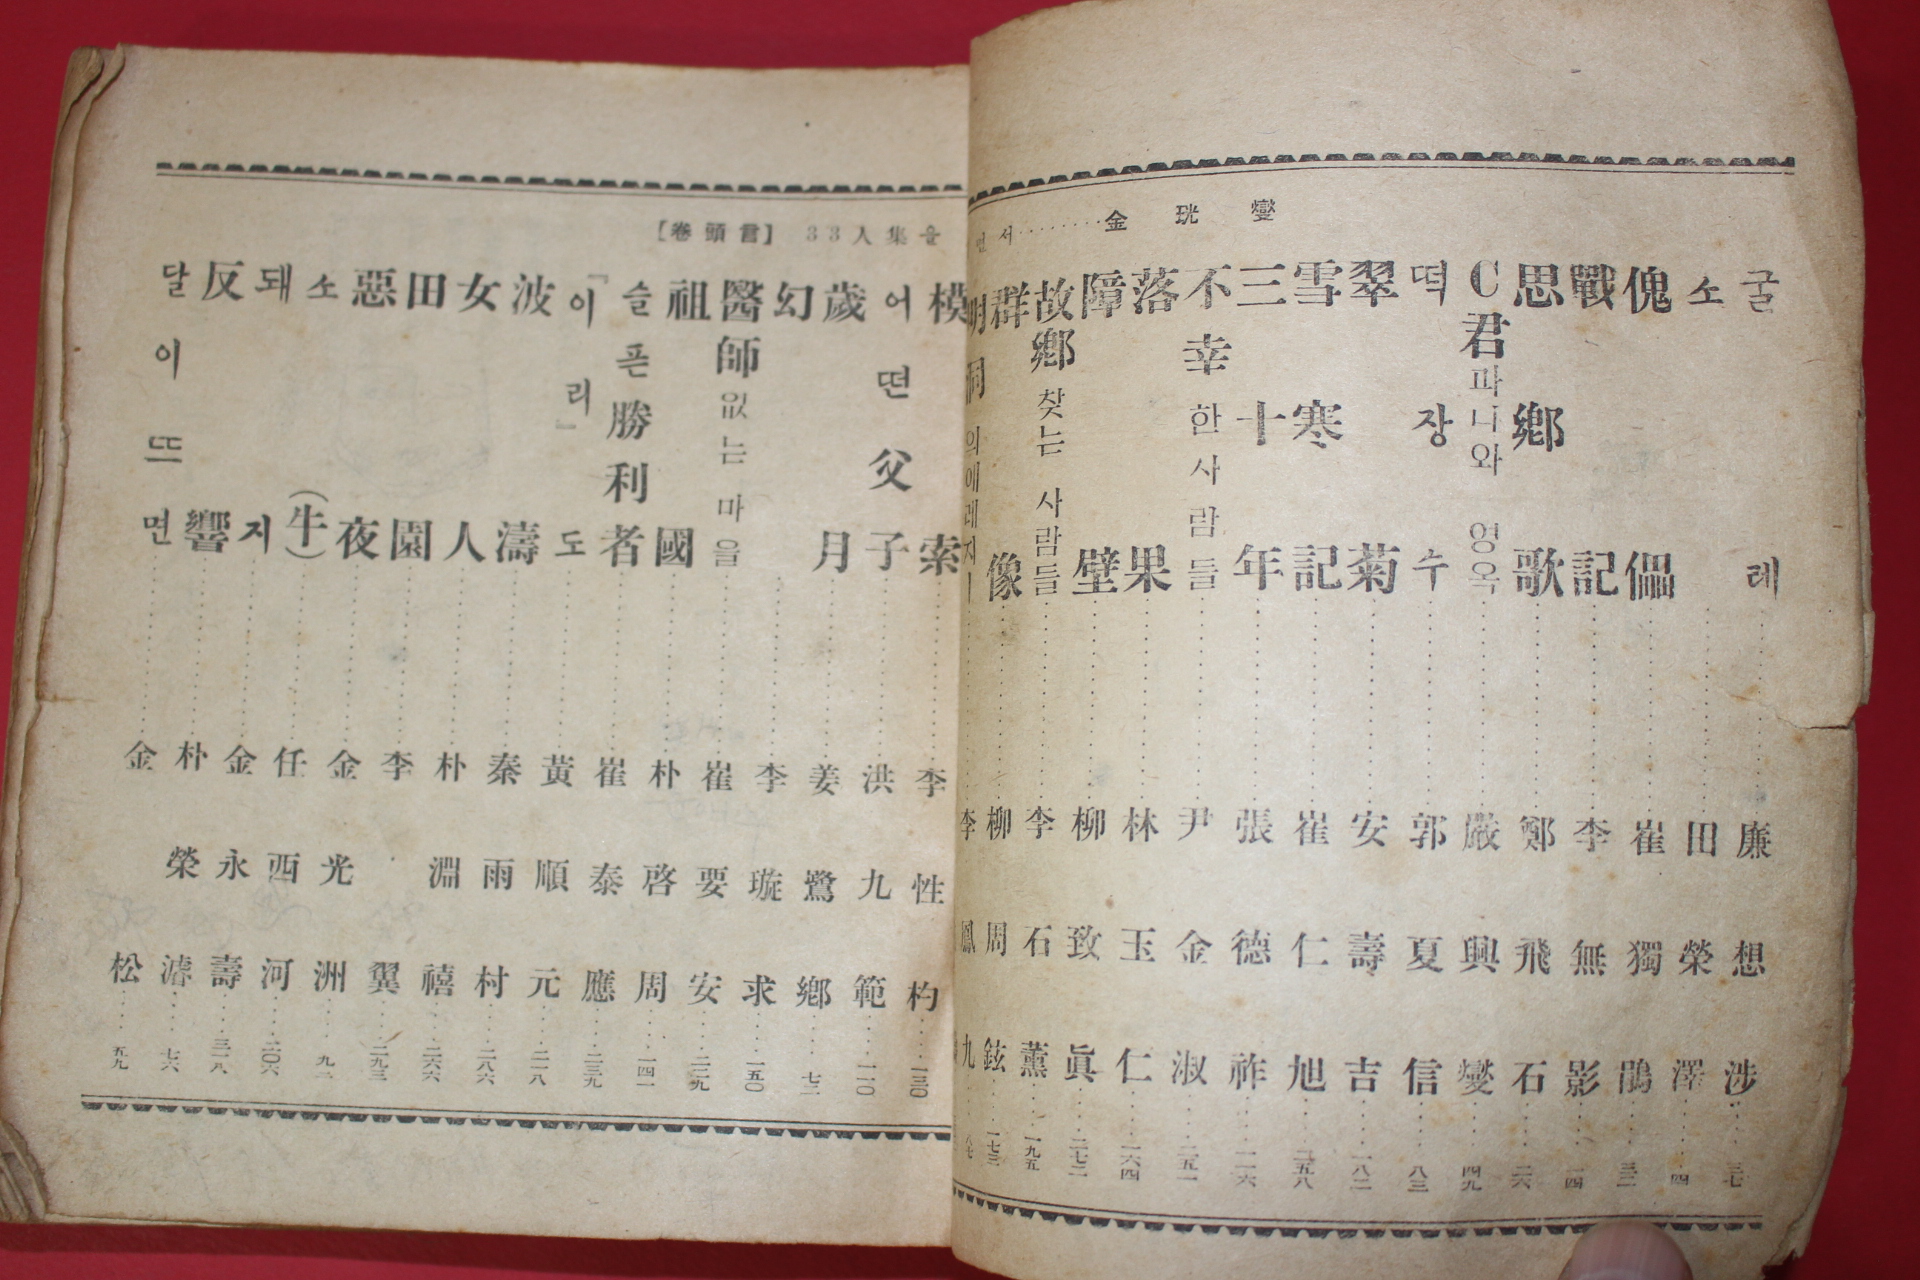 【卷頭言】 33人集을 면서········金珖燮
굴레 廉想涉
소 田榮澤 四
傀儡 崔獨鵑
戰記 李無影 一四
思鄕歌 鄭飛石 二六
C君파니와 영옥 嚴興燮 四九
떡장수 郭夏信 八三
翠菊 安壽吉 一八二
雪寒記 崔仁旭 二五八
三十年 張德祚 二一六
不幸한사람들 尹金淑 二五一
落果 林玉仁 一六四
障壁 柳致眞 二七二
故鄕찾는 사람들 李石薰 一九五
群像 柳周鉉 一七三
明洞의에레지ー 李鳳九
模索 李性杓 一三〇
어떤父子 洪九範 一一〇
歲月 姜鷺鄕
幻 李璇求 一五〇
醫師없는마을 崔要安 二二九
祖國 朴啓周 一四一
슬픈勝利者 崔泰應 二三九
「이리」도 黃順元 二一八
波濤 秦雨村 二八六
女人 朴淵禧 二六六
田園 李翼 二九三
惡夜 金光洲
소(牛) 任西河 二〇六
돼지 金永壽 三一八
反響 朴榮濬 七六
달이뜨면 金松 五九